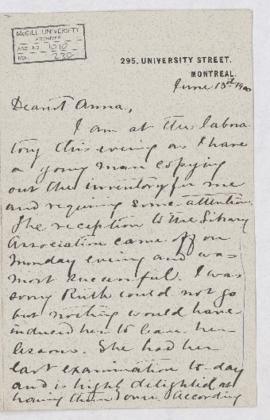 McGILL UNIVERSITY
ARCHIVES
ACC. NO. 1010
REF.
295, UNIVERSITY STREET.
MONTREAL.
June 13th 1900
Dearest Anna,
I am at the labora
tory this evening as I have
a young man copying
out the inventory for me
and requiring some attention.
The reception to the Library
Association came off on
Monday evening and was
most successful. I was
sorry Ruth could not go
but nothing would have
induced her to leave her
lessons. She had her
last examination to-day
and is highly delighted at
having them over. According